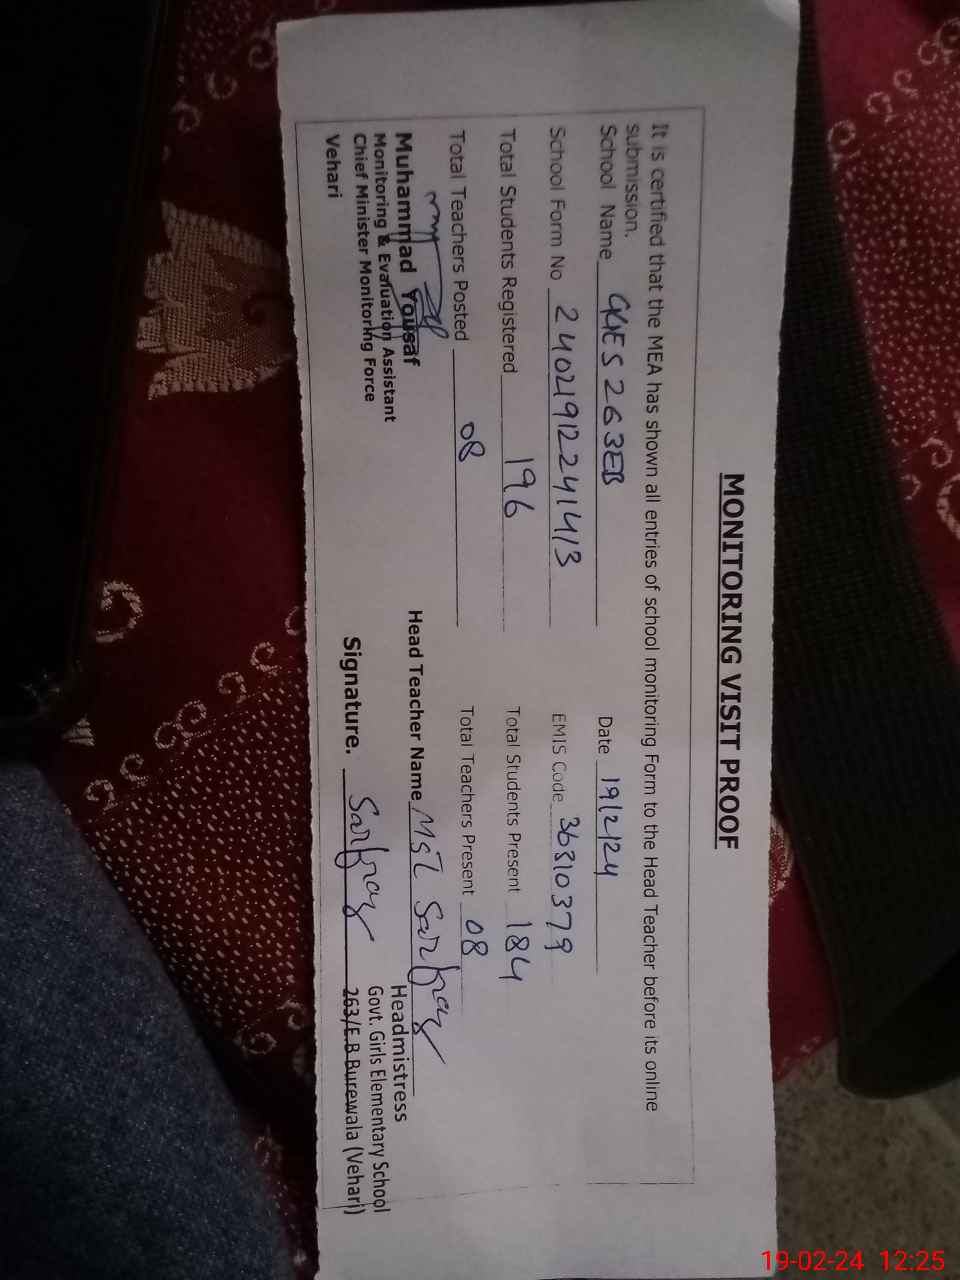 MONITORING VISIT PROOF
It is certified that the MEA has shown all entries of school monitoring Form to the Head Teacher before its online
submission.
School Name GGES 263EB Date 19/2/24
School Form No 24021912241413 EMIS Code 36310379
Total Students Registered 196 Total Students Present 184
Total Teachers Posted 08 Total Teachers Present 08
Muhammad Yousaf
Monitoring & Evaluation Assistant
Chief Minister Monitoring Force
Vehari
Head Teacher Name Mst Sarfraz
Signature. Sarfraz
Headmistress
Govt. Girls Elementary School
263/E.B Burewala (Vehari)
19-02-24 12:25